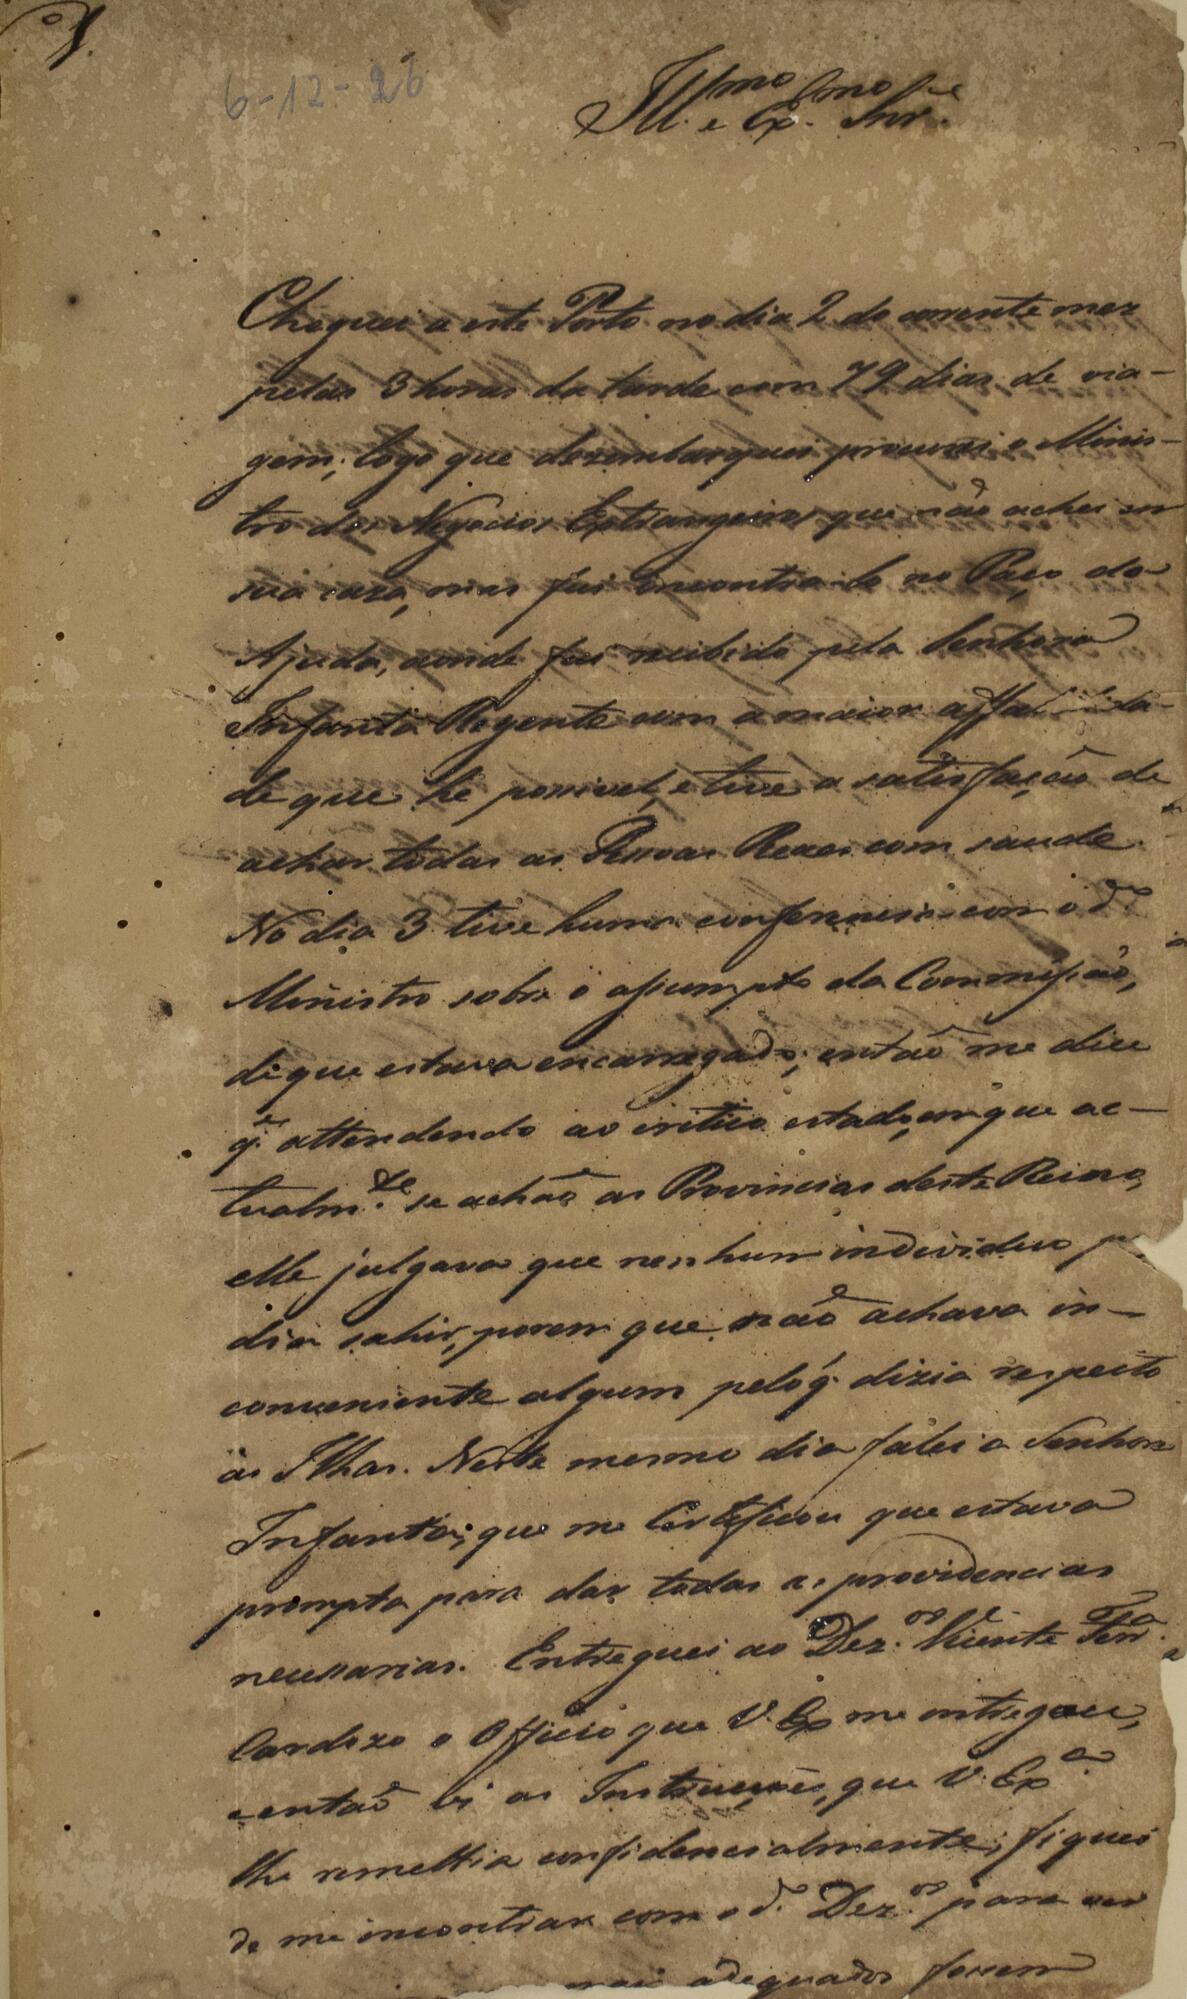 6-12-26
Ill.mo e Ex.mo Snr.
Cheguei a este Porto no dia 2 do corrente mez
pelas 3 horas da tarde com 79 dias de via-
gem; logo que dezembarquei procurei o Minis-
tro dos Negocios Extrangeiros que não achei em
sua caza, mas fui encontra-lo no Paço da
Ajuda, aonde fui recibido pela Senhora
Infanta Regente com a maior affabilida-
de que hé possivel, e tive a satisfação de
achar todas as Pessoas Reaes com saude.
No dia 3 tive huma conferencia com o d.o
Ministro sobre o assumpto da Commissão,
de que estava encarregado; então me dice
q.e attendendo ao critico estado, em que ac-
tualm.te se achão as Provincias deste Reino,
elle julgava que nenhum individuo p
dia sahir, porem que não achava in-
conveniente algum pelo q. dizia respeito
ás Ilhas. Neste mesmo dia falei a Senhora
Infanta, que me Certeficou que estava
prompta para dar todas as providencias
necessarias. Entreguei ao Dez.or Vicente Ferr.a
Cardozo o Officio que V. Ex me entregou,
e então li as Instrucções, que V. Ex.a
lhe remettia confidencialmente; fiquei
de me incontrar com o d.o Dez.or para ver
mais adequados forem